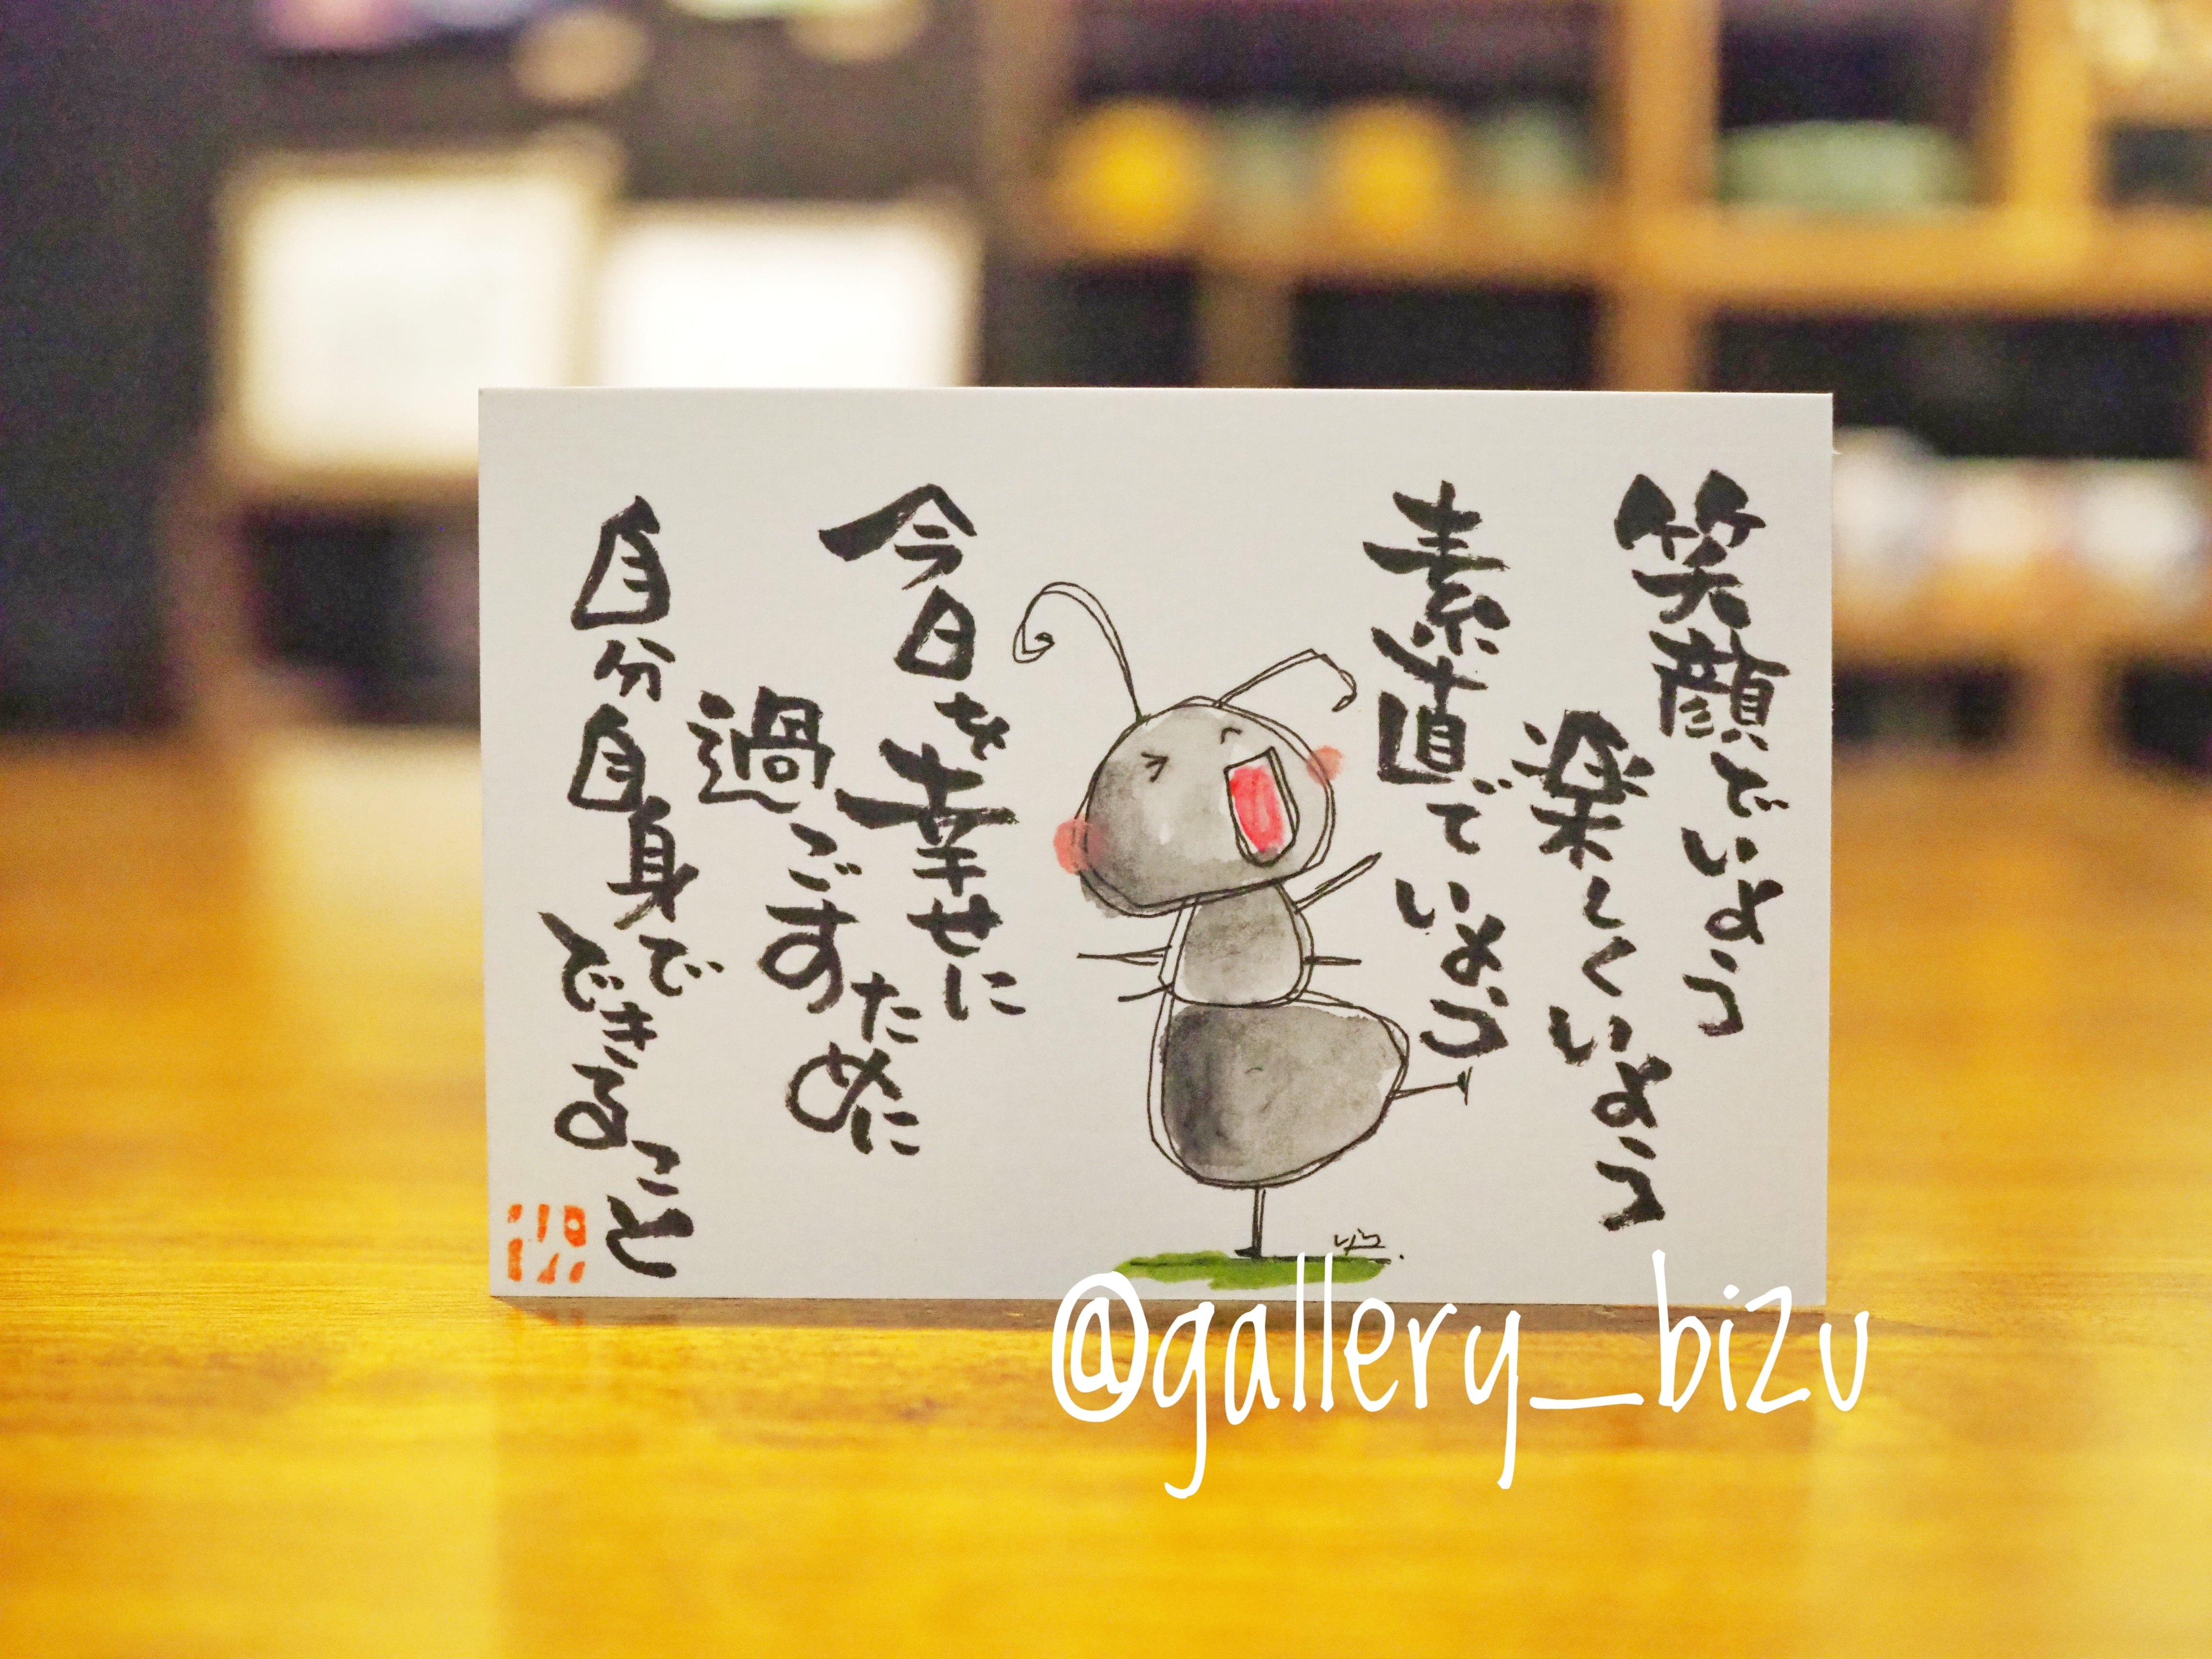 笑顔でいよう
楽しくいよう
素直でいよう
今日を幸せに
過ごすために
自分自身で
できること
@gallery_bizu